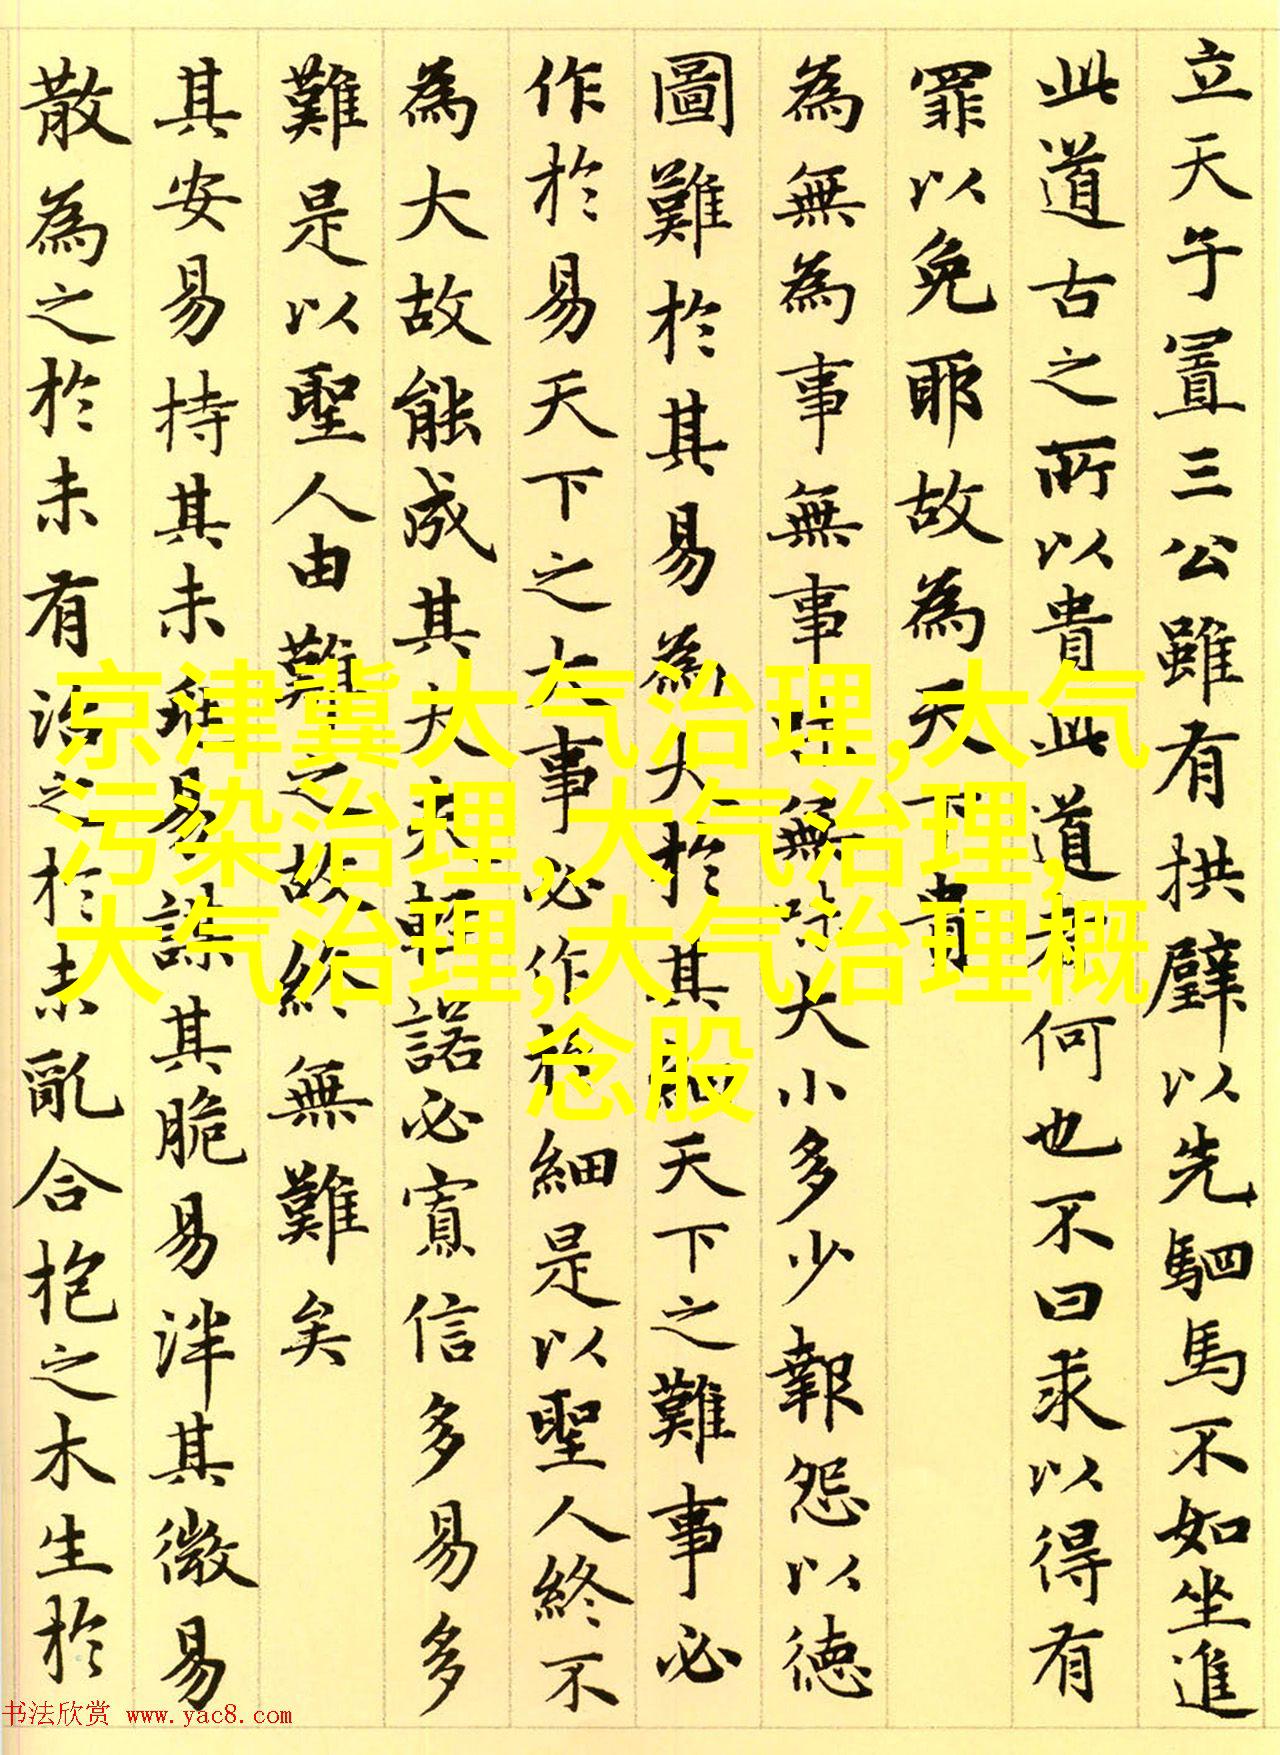 立天子置三公雖有拱璧以先駟馬不如坐進
此道古之所以貴此道者何也不曰求以得有
罪以免耶故為天下貴
為無為事無事味無味大小多少報怨以德
圖難於其易為大於其細天下之難事必
作於易天下之大事必作於細是以聖人終不
為大故能成其大夫輕諾必寡信多易多
難是以聖人由難之故終無難矣
其安易持其未兆易謀其脆易泮其微易
散為之於未有治之於未亂合抱之木生於
京津冀大气治理,大气
污染治理,大气治理,
大气治理,大气治理概
念股
书法欣赏 www.yac8.com